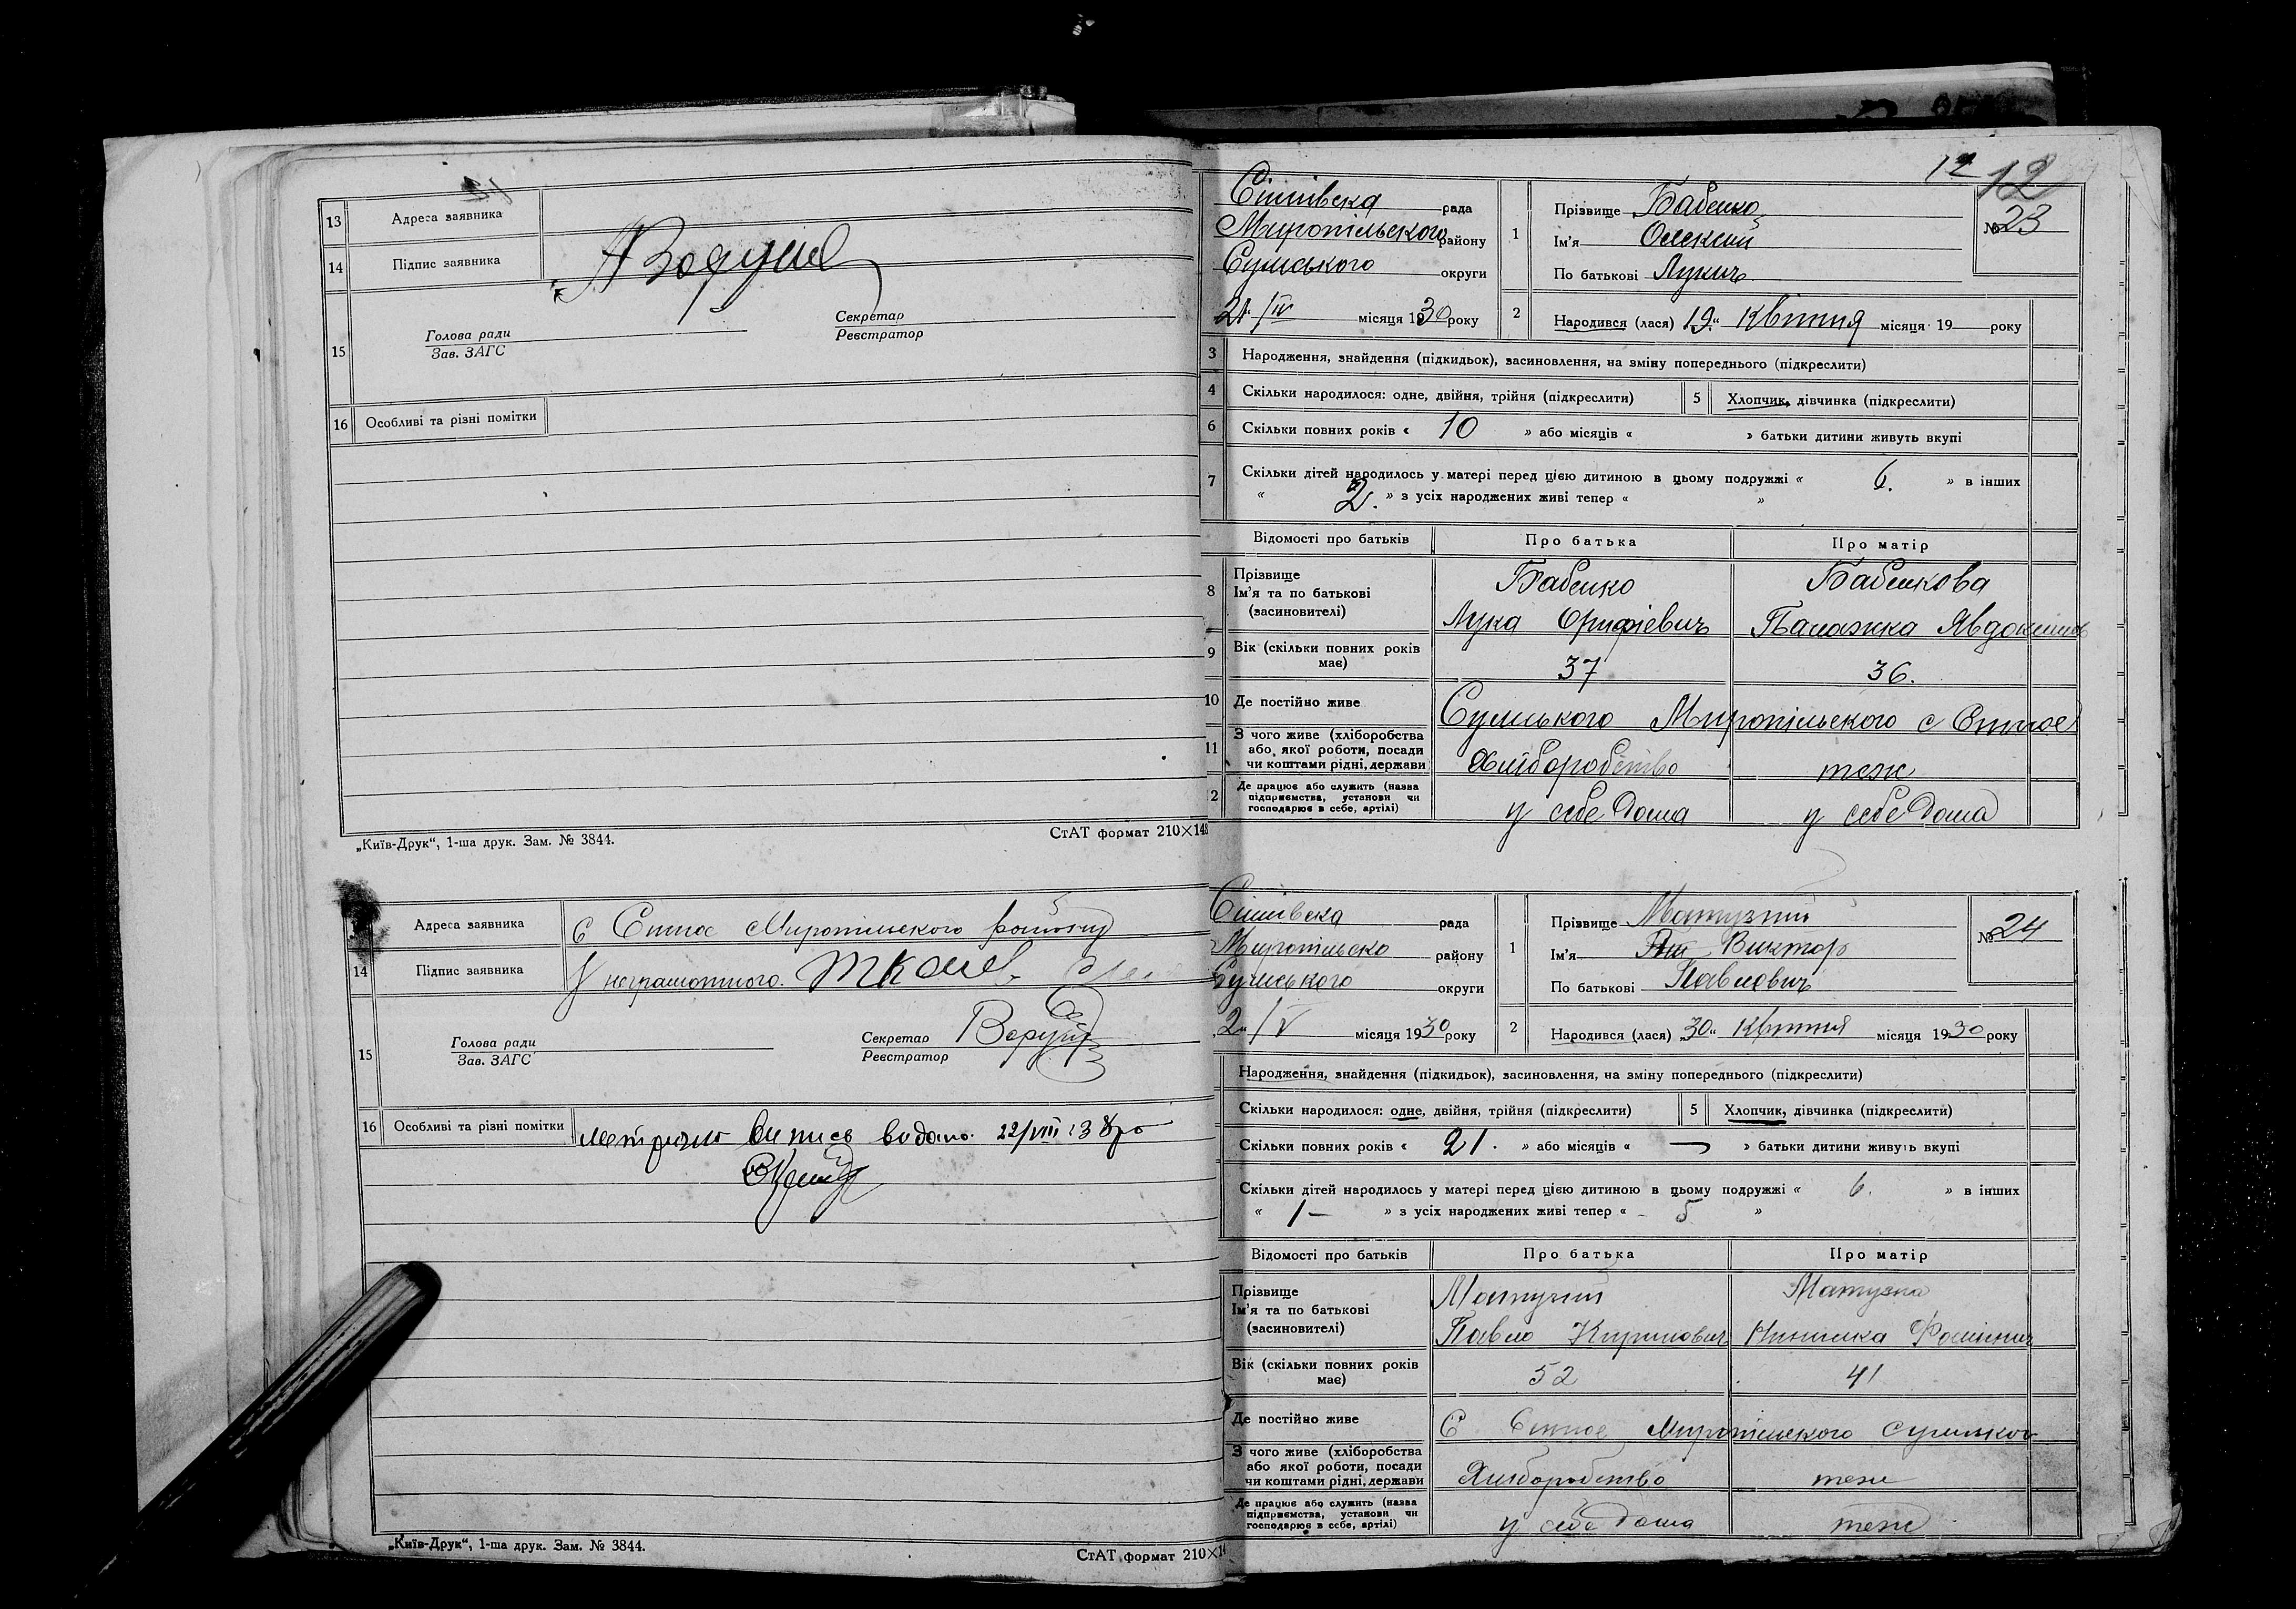 13 Адреса заявника
14 Підпис заявника
15 Голова ради
Зав. ЗАГС
Секретар
Реєстратор
16 Особливі та різні помітки
„Київ-Друк“, 1-ша друк. Зам. № 3844.
СтАТ формат 210×148
Адреса заявника с Миропільського району
14 Підпис заявника неграмотного
15 Голова ради
Зав. ЗАГС
Секретар
Реєстратор
16 Особливі та різні помітки видано 22/VIII
„Київ-Друк“, 1-ша друк. Зам. № 3844.
СтАТ формат 210×14
12 12
рада
Миропільського району
Сумського округи
21 /IV місяця 1930 року
1 Прізвище Бабенко
Ім'я Олексій
По батькові Лукич
№ 23
2 Народився (лася) „19“ Квітня місяця 19 року
3 Народження, знайдення (підкидьок), засиновлення, на зміну попереднього (підкреслити)
4 Скільки народилося: одне, двійня, трійня (підкреслити)
5 Хлопчик, дівчинка (підкреслити)
6 Скільки повних років « 10 » або місяців « » батьки дитини живуть вкупі
7 Скільки дітей народилось у матері перед цією дитиною в цьому подружжі « 6. » в інших
« 2. » з усіх народжених живі тепер « »
Відомості про батьків Про батька Про матір
8 Прізвище Бабенко Бабенкова
Ім'я та по батькові
(засиновителі) Лука
9 Вік (скільки повних років 37 36.
має)
10 Де постійно живе Сумського Миропільського с
11 З чого живе (хліборобства
або якої роботи, посади Хліборобство теж
чи коштами рідні, держави
2 Де працює або служить (назва
підприємства, установи чи у себе дома у себе дома
господарює в себе, артілі)
рада
Миропільсько району
Сумського округи
„2“ /V місяця 1930 року
1 Прізвище
Ім'я Виктор
По батькові Павлович
№ 24
2 Народився (лася) „30“ Квітня місяця 1930 року
Народження, знайдення (підкидьок), засиновлення, на зміну попереднього (підкреслити)
Скільки народилося: одне, двійня, трійня (підкреслити)
5 Хлопчик, дівчинка (підкреслити)
Скільки повних років « 21. » або місяців « — » батьки дитини живуть вкупі
Скільки дітей народилось у матері перед цією дитиною в цьому подружжі « 6. » в інших
« 1 – » з усіх народжених живі тепер « – 5 »
Відомості про батьків Про батька Про матір
Прізвище
Ім'я та по батькові
(засиновителі) Павло Кирилович
Вік (скільки повних років 52 41
має)
Де постійно живе С Миропільського
З чого живе (хліборобства
або якої роботи, посади Хліборобство теж
чи коштами рідні, держави
Де працює або служить (назва
підприємства, установи чи у себе дома теж
господарює в себе, артілі)